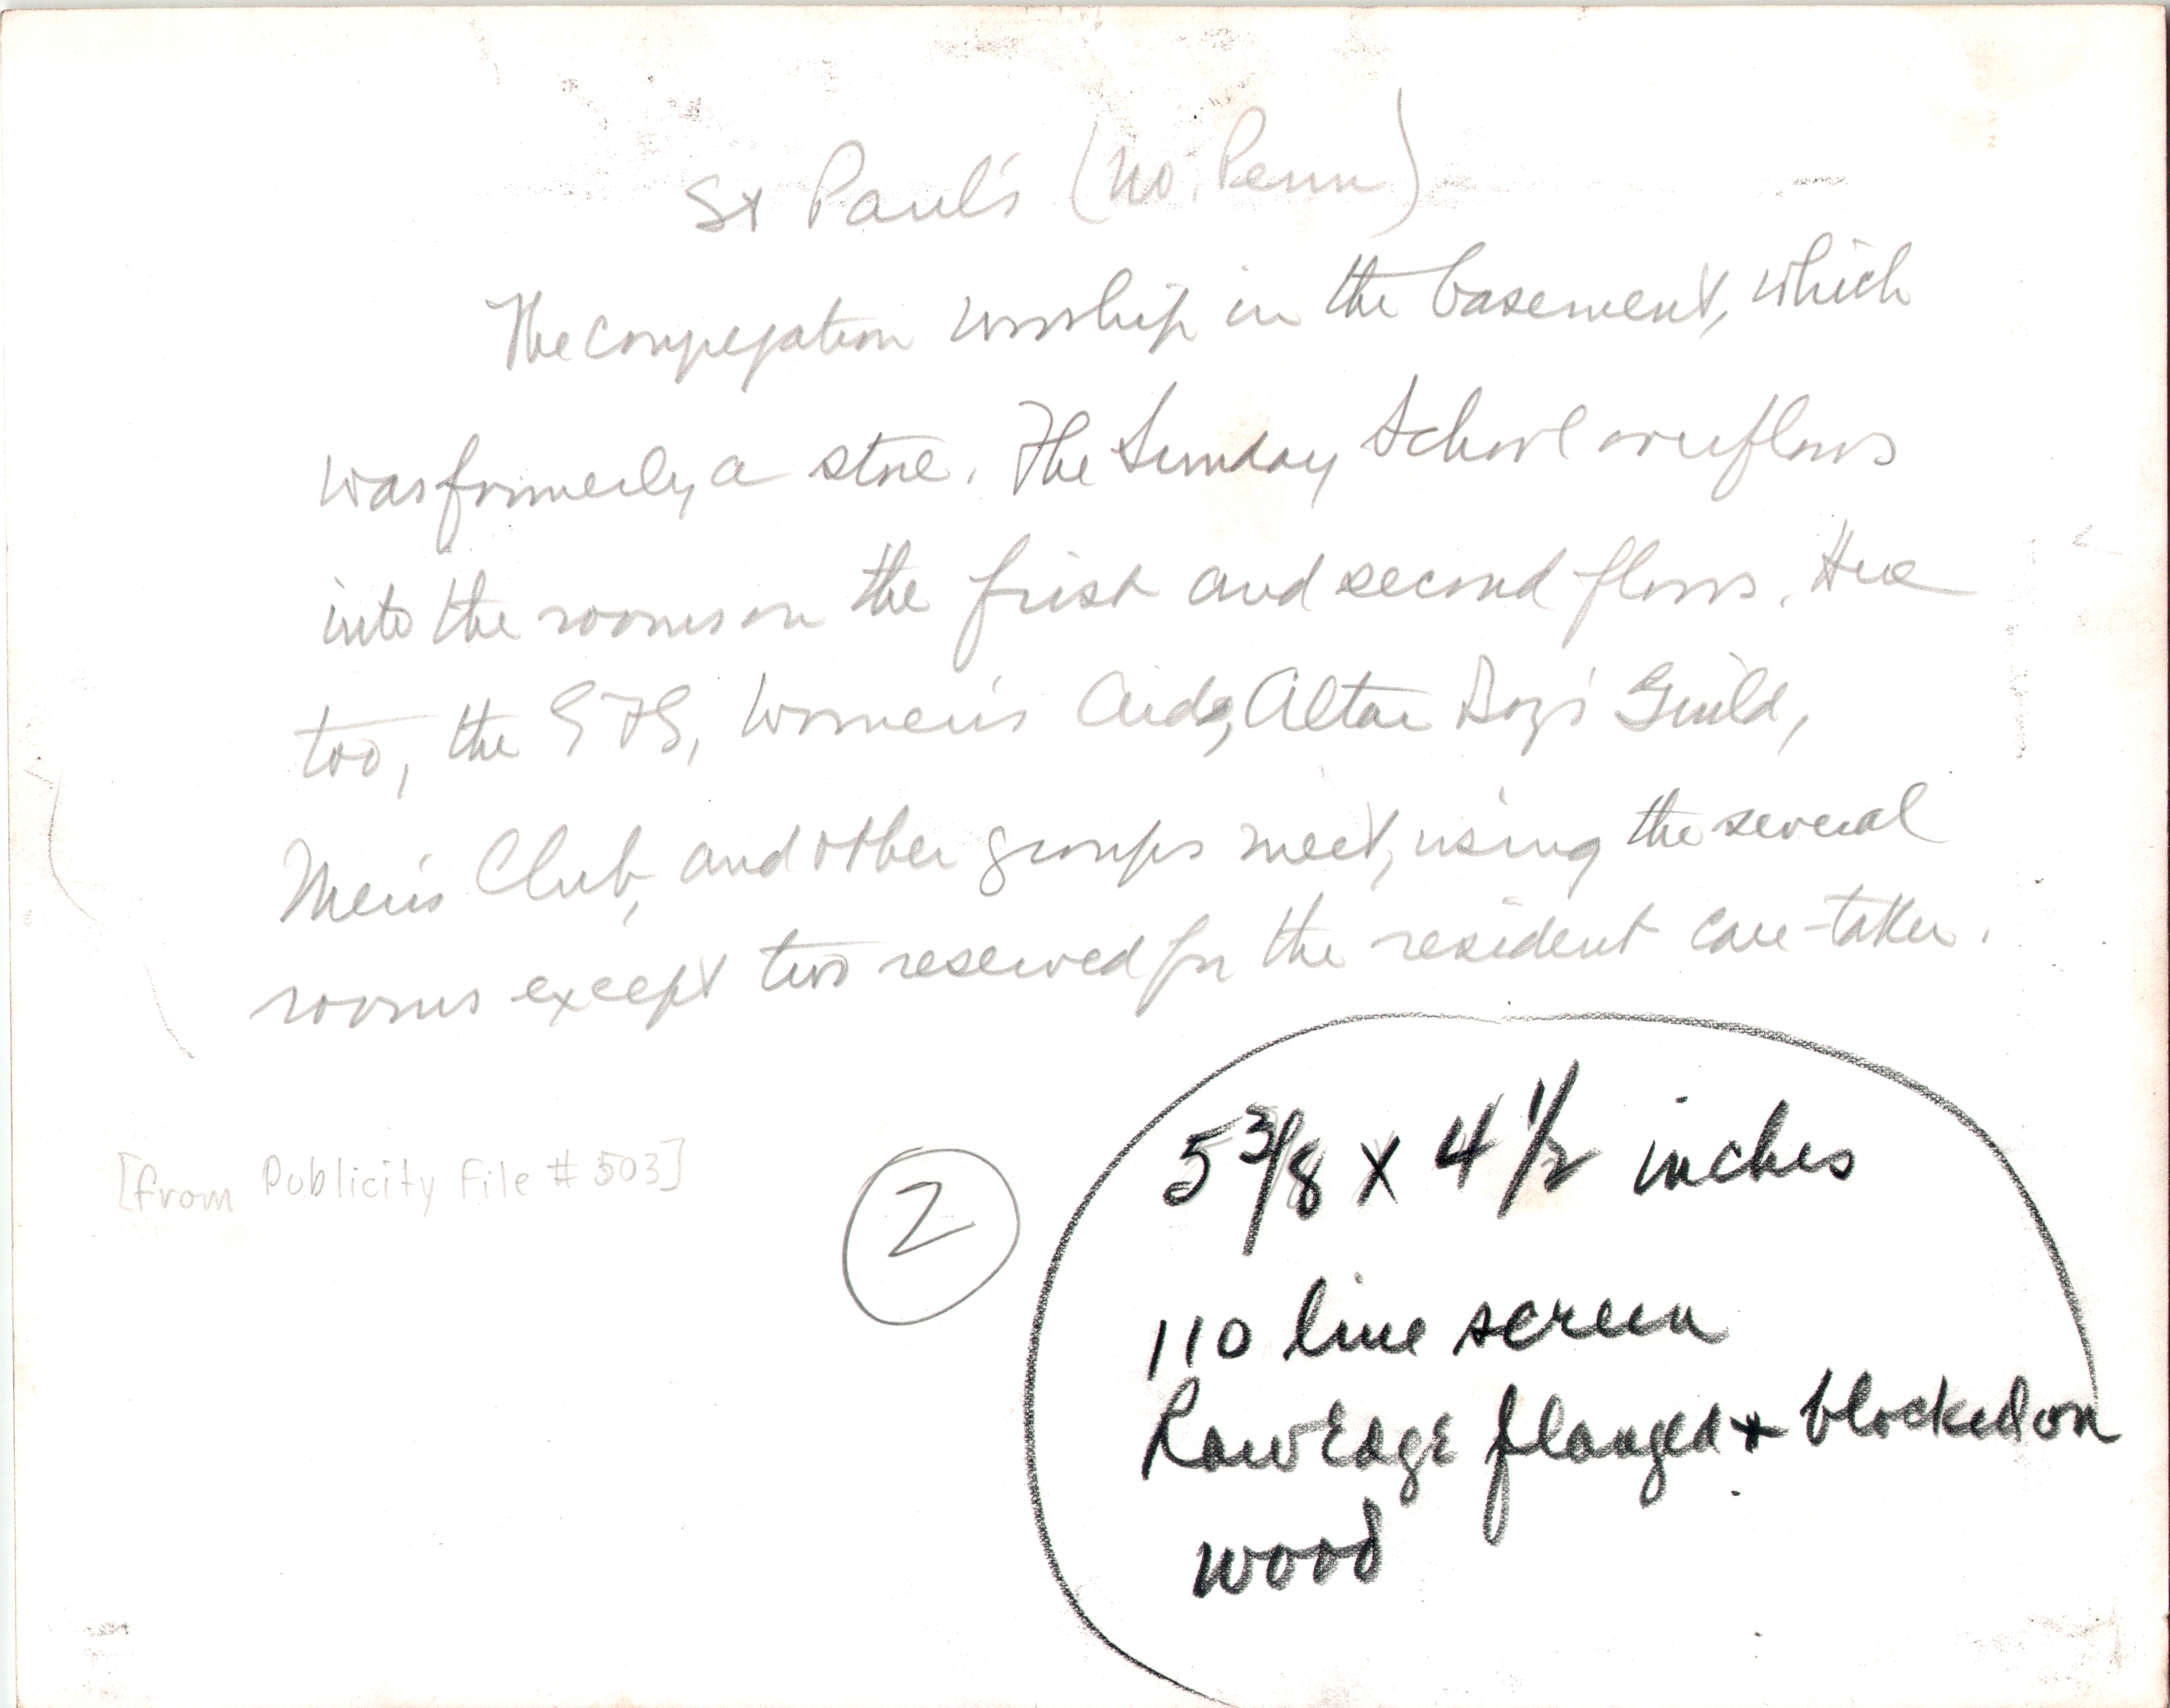 St Paul's (No. Penn)
The congregation worship in the basement, which
was formerly a store. The Sunday School overflows
into the rooms on the first and second floors. Here
too, the GFS, Women's Aid, Altar Boys' Guild,
Men's Club, and other groups meet, using the several
rooms except two reserved for the resident care-taker.
[from Publicity File # 503]
2
5 3/8 x 4 1/2 inches
110 line screen
Raw Edge flanged + blocked on
wood